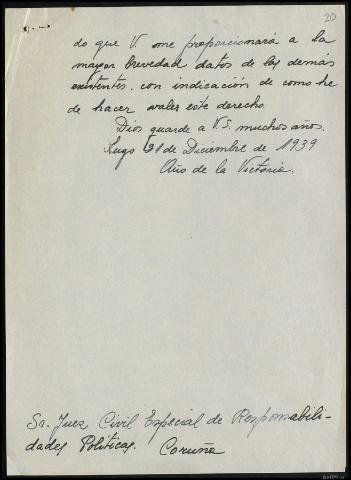 20
do que V. me proporcionará a la
mayor brevedad datos de los demás
existentes. con indicación de como he
de hacer valer este derecho.
Dios guarde a V.S. muchos años.
Lugo 31 de Diciembre de 1939
Año de la Victoria.
Sr. Juez Civil Especial de Responsabili-
dades Políticas. Coruña